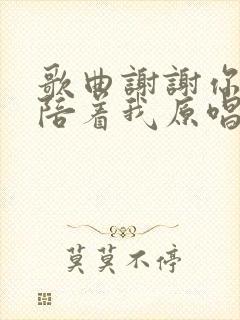 歌曲謝謝你
陪着我原唱
莫莫不停